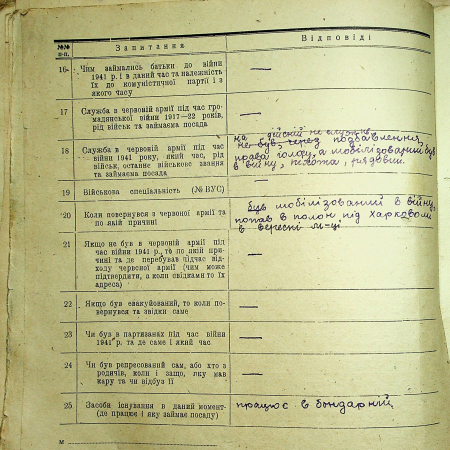 №№
п-п.
Запитання
Відповіді
16
Чим займались батьки до війни
1941 р. і в даний час та належність
їх до комуністичної партії і з
якого часу
—
17
Служба в червоній армії під час гро-
мадянської війни 1917—22 років,
рід військ та займаєма посада
—
18
Служба в червоній армії під час
війни 1941 року, який час, рід
військ, останнє військове звання
та займаєма посада
на дійсній не служив,
не був через позбавлення
права голосу, а мобілізований був
в війну, піхота, рядовий.
19
Військова спеціальність (№ ВУС)
—
20
Коли повернувся з червоної армії та
по якій причині
був мобілізований в війну,
попав в полон під Харковом
в вересні м-ці
21
Якщо не був в червоній армії під
час війни 1941 р., то по якій при-
чині та де перебував підчас від-
ходу червоної армії (чим може
підтвердити, а коли свідками то їх
адреса)
—
22
Якщо був евакуйований, то коли по-
вернувся та звідки саме
—
23
Чи був в партизанах під час війни
1941 р. та де саме і який час
—
24
Чи був репресований сам, або хто з
родичів, коли і защо, яку мав
кару та чи відбув її
—
25
Засоби існування в даний момент
(де працює і яку займає посаду)
працює в бондарній
м